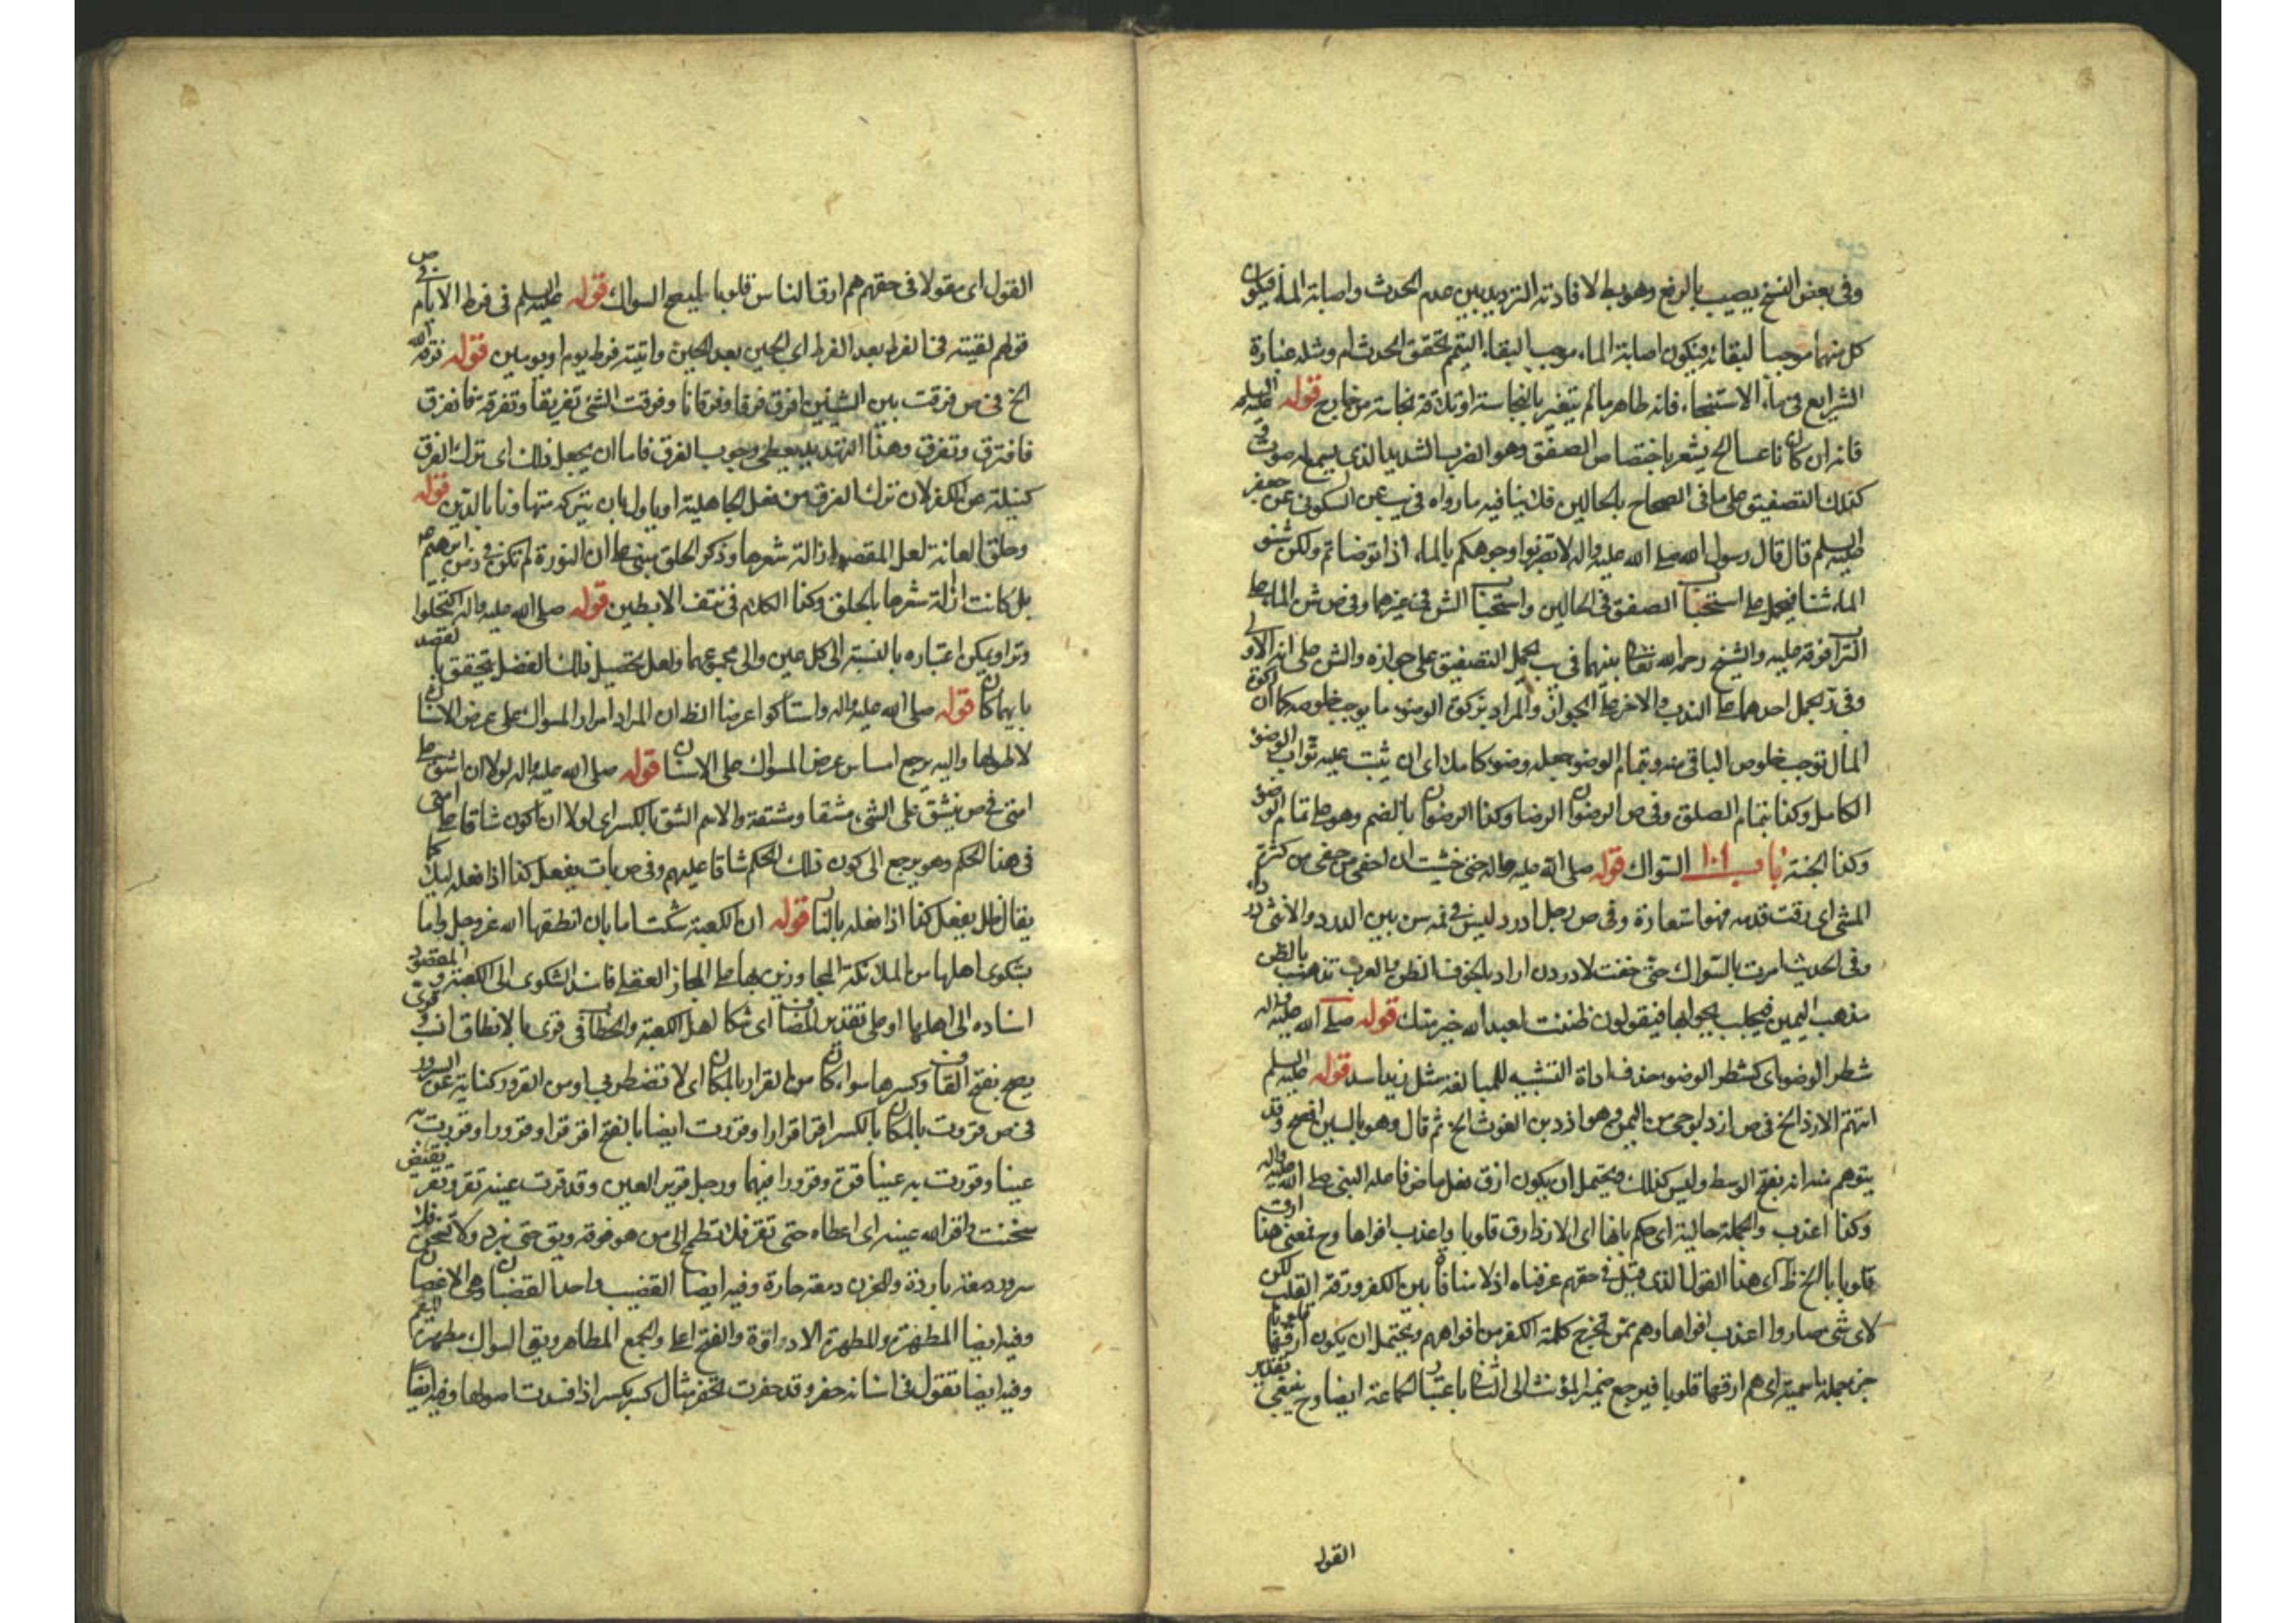 وفى بعض النسخ يصيب بالرفع وهو يط لافادته الترديد بين عدم الحدث واصابة الماء فيكون
كل منهما موجبا لبقائه فيكون اصابة الماء موجبا لبقاء التيمم تحقق الحدث ام ومثله عبارة
الشرايع فى ماء الاستنجاء فانه طاهر ما لم يتغير بالنجاسة او تلاقه نجاسة من خارج قوله عليه السلم
فانه ان كان ناعسا الخ يشعر باختصاص الصفق وهو الضرب الشديد الذى يسمع له صوت
كذلك التصفيق على ما فى الصحاح بالحالين فلا ينافيه ما رواه فى يب عن السكونى عن جعفر
عليه السلم قال قال رسول الله صلى الله عليه واله لا تضربوا وجوهكم بالماء اذا توضاتم ولكن شنوا
الماء شنا فيحمل على استحباب الصفق فى الحالين واستحباب الشن فى غيرهما وفى ص شن الماء على
التراب فرقه عليه والشيخ رحمه الله بينهما فى يب بحمل التصفيق على جوازه والشن على انه الاولى
وفى بحمل احدهما على الندب والاخر على الجواز والمراد بزكوة الوضوء ما يوجب خلوصه كما ان زكوة
المال توجب خلوص الباقى منه وبتمام الوضوء جعله وضوء كاملا اى ان يثبت عليه ثواب الوضوء
الكامل وكذا بتمام الصلق وفى ص الرضوان الرضا وكذا الرضوان بالضم وهو على تمام الوضوء
وكذا الجنة باب السواك قوله صلى الله عليه واله حتى خشيت ان احفى من حفى من كثرة
المشى اى رقت قدمه فهو استعارة وفى ص رجل ادرد ليس فى فمه سن بين الدرد والانثى درداء
وفى الحديث امرت بالسواك حتى خفت لادردن اراد بالخوف الظن والعرب تذهب بالظن
مذهب اليمين فيجاب بجوابها فيقولون ظننت لعبد الله خير منك قوله صلى الله عليه واله
شطر الوضوء اى كشطر الوضوء حذف اداة التشبيه للمبالغة مثل زيد اسد قوله عليه السلم
اتتهم الازد الخ فى ص ازد ابو حى من اليمن وهو ازد بن الغوث الخ ثم قال وهو بالسين افصح وقد
يتوهم منه انه بفتح الوسط وليس كذلك فيحتمل ان يكون ارق فعل ماض فاعله النبى صلى الله عليه واله
وكذا اعذب والجملة حالية اى حكم بانها اى الازد ارق قلوبا واعذب افواها وح فمعنى هذا ارق
قلوبا بالخ ظ اى هذا القول الذى قيل فى حقهم عرفناه اذ لا منافاة بين الكفر ورقة القلب لكن
لاى شى صاروا اعذب افواها وهم ممن تخرج كلمة الكفر من افواههم ويحتمل ان يكون ارقها قلوبا
جزء جملة اسمية اى هم ارقها قلوبا فيرجع ضمير المؤنث الى الناس باعتبار الجماعة ايضا وح ينبغى تقدير
القول
القول اى مقولا فى حقهم هم ارق الناس قلوبا ليصح السوال قوله عليه السلم فى فرط الايام فى ص
قولهم لقيته فى الفرط بعد الفرط اى الحين بعد الحين واتيته فرط يوم او يومين قوله فرقه الله
الخ فى ص فرقت بين الشيئين افرق فرقا وفرقانا وفرقت الشئ تفريقا وتفرقة فانفرق
فافترق وتفرق وهذا التهديد يعطى وجوب الفرق فاما ان يجعل ذلك اى ترك الفرق
كناية عن الكفر لان ترك الفرق من فعل الجاهلية او ياول بان يتركه متهاونا بالدين قوله
وحلق العانة لعل المقصود ازالة شعرها وذكر الحلق مبنى على ان النورة لم تكن فى زمن ابرهيم
بل كانت ازالة شعرها بالحلق وكذا الكلام فى نتف الابطين قوله صلى الله عليه واله اكتحلوا
وترا ويمكن اعتباره بالنسبة الى كل عين والى مجموعهما ولعل تحصيل ذلك الفضل يتحقق بالقصد
بايهما كان قوله صلى الله عليه واله واستاكوا عرضا الظ ان المراد امرار المسواك على عرض الاسنان
لا طولها واليه يرجع امساس عرض المسواك على الاسنان قوله صلى الله عليه واله لولا ان اشق على
امتى فى ص يشق على الشئ مشقا ومشقة والاسم الشق بالكسر اى لولا ان اكون شاقا على امتى
فى هذا الحكم وهو يرجع الى كون ذلك الحكم شاقا عليهم وفى ص بات يفعل كذا اذا فعله ليلا كما
يقال ظل يفعل كذا اذا فعله بالنهار قوله ان الكعبة شكت اما بان انطقها الله عز وجل واما
بشكوى اهلها من الملائكة المجاورين بها على المجاز العقلى فاسند الشكوى الى الكعبة والمقصود
اسناده الى اهلها او على تقدير المضاف اى شكا اهل الكعبة والخطاب فى قرى بالانطاق انسب وقرى
يصح بفتح القاف وكسرها سواء كان من القرار بالمكان اى لا تضطربى او من القرور كناية عن السرور
فى ص قررت بالمكان بالكسر اقر قرارا وقررت ايضا بالفتح اقر قرارا وقرورا وقررت به
عينا وقررت به عينا قرة وقرورا فيهما ورجل قرير العين وقد قرت عينه تقر وتقر نقيض
سخنت واقر الله عينه اى اعطاه حتى تقر فلا تطمح الى من هو فوقه ويق حتى تبرد ولا تسخن فلل
سرور دمعة باردة وللحزن دمعة حارة وفيه ايضا القضيب واحد القضبان وهى الاغصان
وفيه ايضا المطهرة والمطهرة الادواة والفتح اعلى والجمع المطاهر ويق السواك مطهرة للفم
وفيه ايضا تقول فى اسنانه حفر وقد حفرت تحفر مثال كسر يكسر اذا فسدت اصولها وفيه ايضا